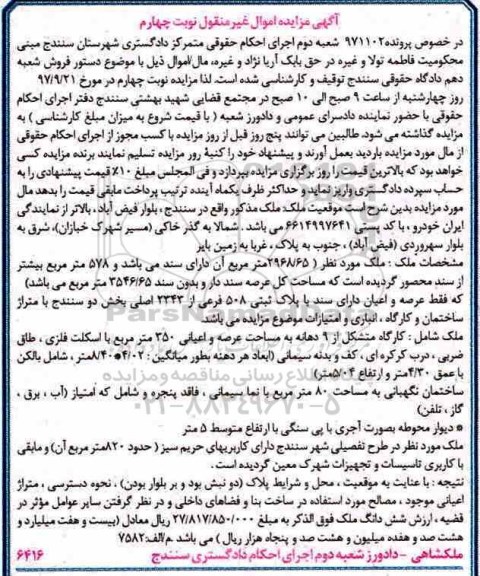 آگهی مزایده اموال غیر منقول نوبت چهارم
در خصوص پرونده ۹۷۱۱۰۲ شعبه دوم اجرای احکام حقوقی متمرکز دادگستری شهرستان سنندج مبنی
محکومیت فاطمه تولا و غیره در حق بابک آریا نژاد و غیره، مال/اموال ذیل با موضوع دستور فروش شعبه
دهم دادگاه حقوقی سنندج توقیف و کارشناسی شده است. لذا مزایده نوبت چهارم در مورخ ۹۷/۹/۲۱
روز چهارشنبه از ساعت ۹ صبح الی ۱۰ صبح در مجتمع قضایی شهید بهشتی سنندج دفتر اجرای احکام
حقوقی با حضور نماینده دادسرای عمومی و دادورز شعبه ( با قیمت شروع به میزان مبلغ کارشناسی ) به
مزایده گذاشته می شود. طالبین می توانند پنج روز قبل از روز مزایده با کسب مجوز از اجرای احکام حقوقی
از مال مورد مزایده بازدید بعمل آورند و پیشنهاد خود را کتبا روز مزایده تسلیم نمایند برنده مزایده کسی
خواهد بود که بالاترین قیمت را روز برگزاری مزایده بپردازد و فی المجلس مبلغ ۱۰٪ قیمت پیشنهادی را به
حساب سپرده دادگستری واریز نماید و حداکثر ظرف یکماه آینده ترتیب پرداخت مابقی قیمت را بدهد مال
مورد مزایده بدین شرح است موقعیت ملک: ملک مذکور واقع در سنندج ، بلوار فیض آباد ، بالاتر از نمایندگی
ایران خودرو ، با کد پستی ۶۶۱۴۹۹۷۶۴۱ می باشد . شمالا به گذر خاکی (مسیر شهرک خبازان)، شرق به
بلوار سهروردی (فیض آباد) ، جنوب به پلاک ، غربا به زمین بایر
مشخصات ملک : ملک مورد نظر ( ۲۹۶۸/۶۵متر مربع آن دارای سند می باشد و ۵۷۸ متر مربع بیشتر
از سند محصور گردیده است که مساحت کل عرصه سند دار و بدون سند ۳۵۴۶/۶۵ متر مربع می باشد)
که فقط عرصه و اعیان دارای سند با پلاک ثبتی ۵۰۸ فرعی از ۲۳۴۳ اصلی بخش دو سنندج با متراژ
ساختمان و کارگاه ، انباری و امتیازات موضوع مزایده می باشد.
ملک شامل : کارگاه متشکل از ۹ دهانه به مساحت عرصه و اعیانی ۳۵۰ متر مربع با اسکلت فلزی ، طاق
ضربی ، درب کرکره ای ، کف و بدنه سیمانی (ابعاد هر دهنه بطور میانگین : ۴/۰۲*۸/۴۰متر ، شامل بالکن
با عمق ۴/۳۰متر و ارتفاع ۵/۰۴متر)
ساختمان نگهبانی به مساحت ۸۰ متر مربع با نما سیمانی ، فاقد پنجره و شامل که امتیاز (آب ، برق ،
گاز ، تلفن)
* دیوار محوطه بصورت آجری با پی سنگی با ارتفاع متوسط ۵ متر
ملک مورد نظر در طرح تفصیلی شهر سنندج دارای کاربریهای حریم سبز ( حدود ۸۲۰متر مربع آن) و مابقی
با کاربری تاسیسات و تجهیزات شهرک معین گردیده است .
نتیجه : با عنایت به موقعیت ، محل و شرایط پلاک (دو نبش بود و بر بلوار بودن) ، نحوه دسترسی ، متراژ
اعیانی موجود ، مصالح مورد استفاده در ساخت بنا و فضاهای داخلی و در نظر گرفتن سایر عوامل مؤثر در
قضیه ، ارزش شش دانگ ملک فوق الذکر به مبلغ ۲۷/۸۱۷/۸۵۰/۰۰۰ ریال معادل (بیست و هفت میلیارد و
هشت صد و هفده میلیون و هشت صد و پنجاه هزار ریال ) می باشد .م/الف:۷۵۸۲
ملکشاهی - دادورز شعبه دوم اجرای احکام دادگستری سنندج ۶۴۱۶